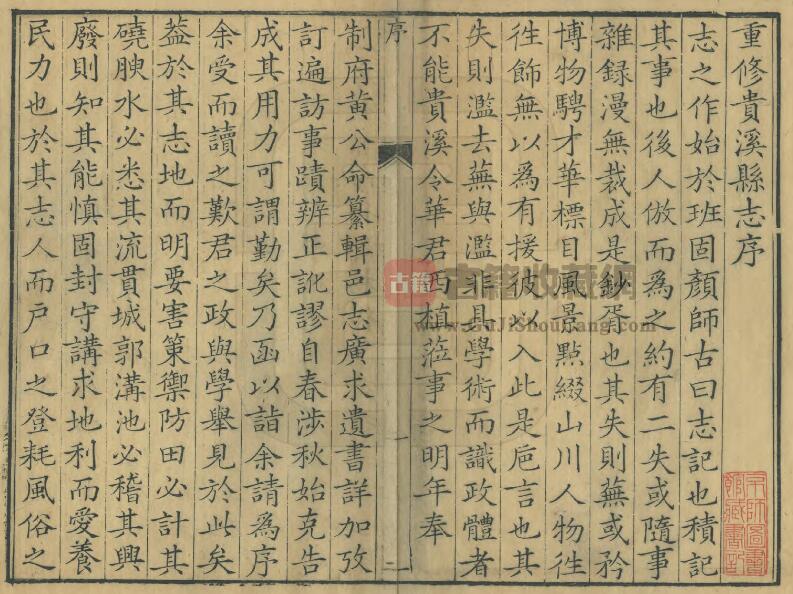 重修貴溪縣志序
志之作始於班固顏師古曰志記也積記
其事也後人倣而為之約有二失或隨事
雜録漫無裁成是鈔胥也其失則蕪或矜
博物騁才華標目風景點綴山川人物徃
徃飾無以為有援彼以入此是巵言也其
失則濫去蕪與濫非具學術而識政體者
不能貴溪令華君西植蒞事之明年奉
序
一
制府黄公命纂輯邑志廣求遺書詳加攷
訂遍訪事蹟辨正訛謬自春涉秋始克告
成其用力可謂勤矣乃函以詣余請為序
余受而讀之歎君之政與學舉見於此矣
葢於其志地而明要害策禦防田必計其
磽腴水必悉其流貫城郭溝池必稽其興
廢則知其能慎固封守講求地利而愛養
民力也於其志人而戸口之登耗風俗之
京師圖書
館藏書記
古籍
古籍收藏網
www.GuJiShouCang.com